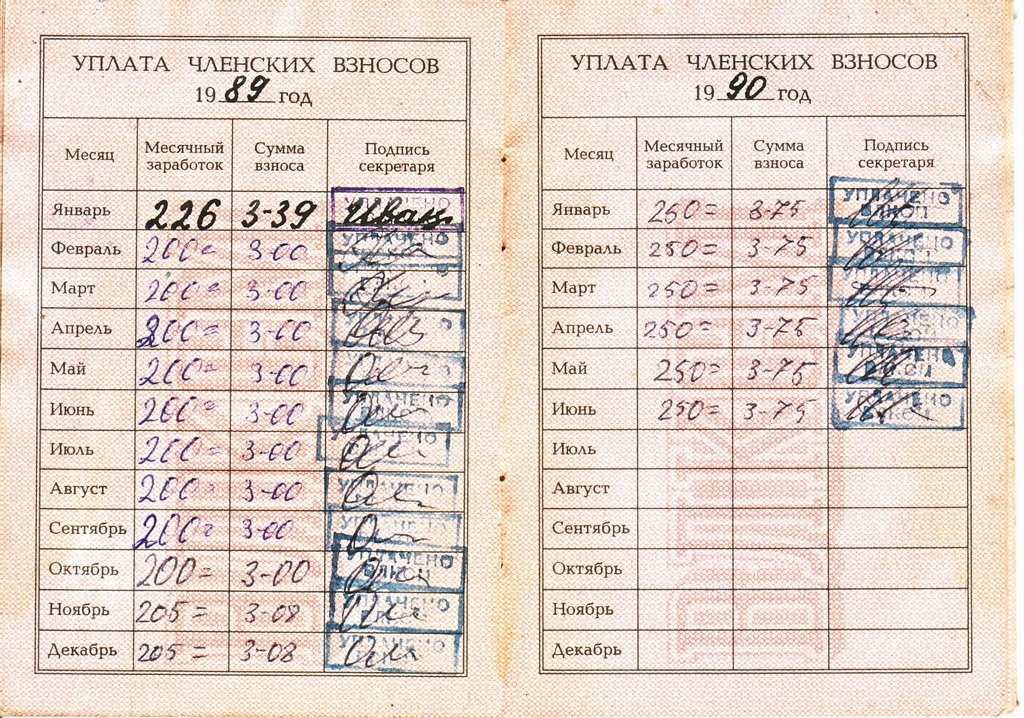 УПЛАТА ЧЛЕНСКИХ ВЗНОСОВ
19 89 год
Месяц Месячный заработок Сумма взноса Подпись секретаря
Январь 226 3-39
Февраль 200= 3-00 УПЛАЧЕНО
Март 200= 3-00
Апрель 200= 3-00
Май 200= 3-00
Июнь 200= 3-00 УПЛАЧЕНО
Июль 200= 3-00 УПЛАЧЕНО
Август 200= 3-00 УПЛАЧЕНО
Сентябрь 200= 3-00 УПЛАЧЕНО
Октябрь 200= 3-00 УПЛАЧЕНО ВЛКСМ
Ноябрь 205= 3-08 УПЛАЧЕНО
Декабрь 205= 3-08 УПЛАЧЕНО
УПЛАТА ЧЛЕНСКИХ ВЗНОСОВ
19 90 год
Месяц Месячный заработок Сумма взноса Подпись секретаря
Январь 250= 3-75 УПЛАЧЕНО
Февраль 250= 3-75 УПЛАЧЕНО
Март 250= 3-75
Апрель 250= 3-75
Май 250= 3-75 УПЛАЧЕНО
Июнь 250= 3-75 УПЛАЧЕНО
Июль
Август
Сентябрь
Октябрь
Ноябрь
Декабрь